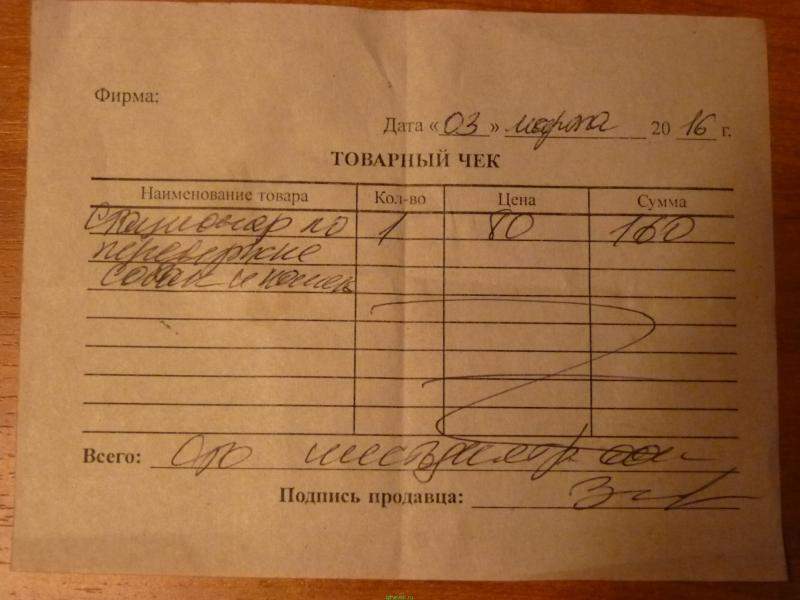 Фирма:
Дата « 03 » марта 20 16 г.
ТОВАРНЫЙ ЧЕК
Наименование товара Кол-во Цена Сумма
Стационар по 1 80 160
передержке
собак и кошек
Всего: Сто шестьдесят
Подпись продавца: